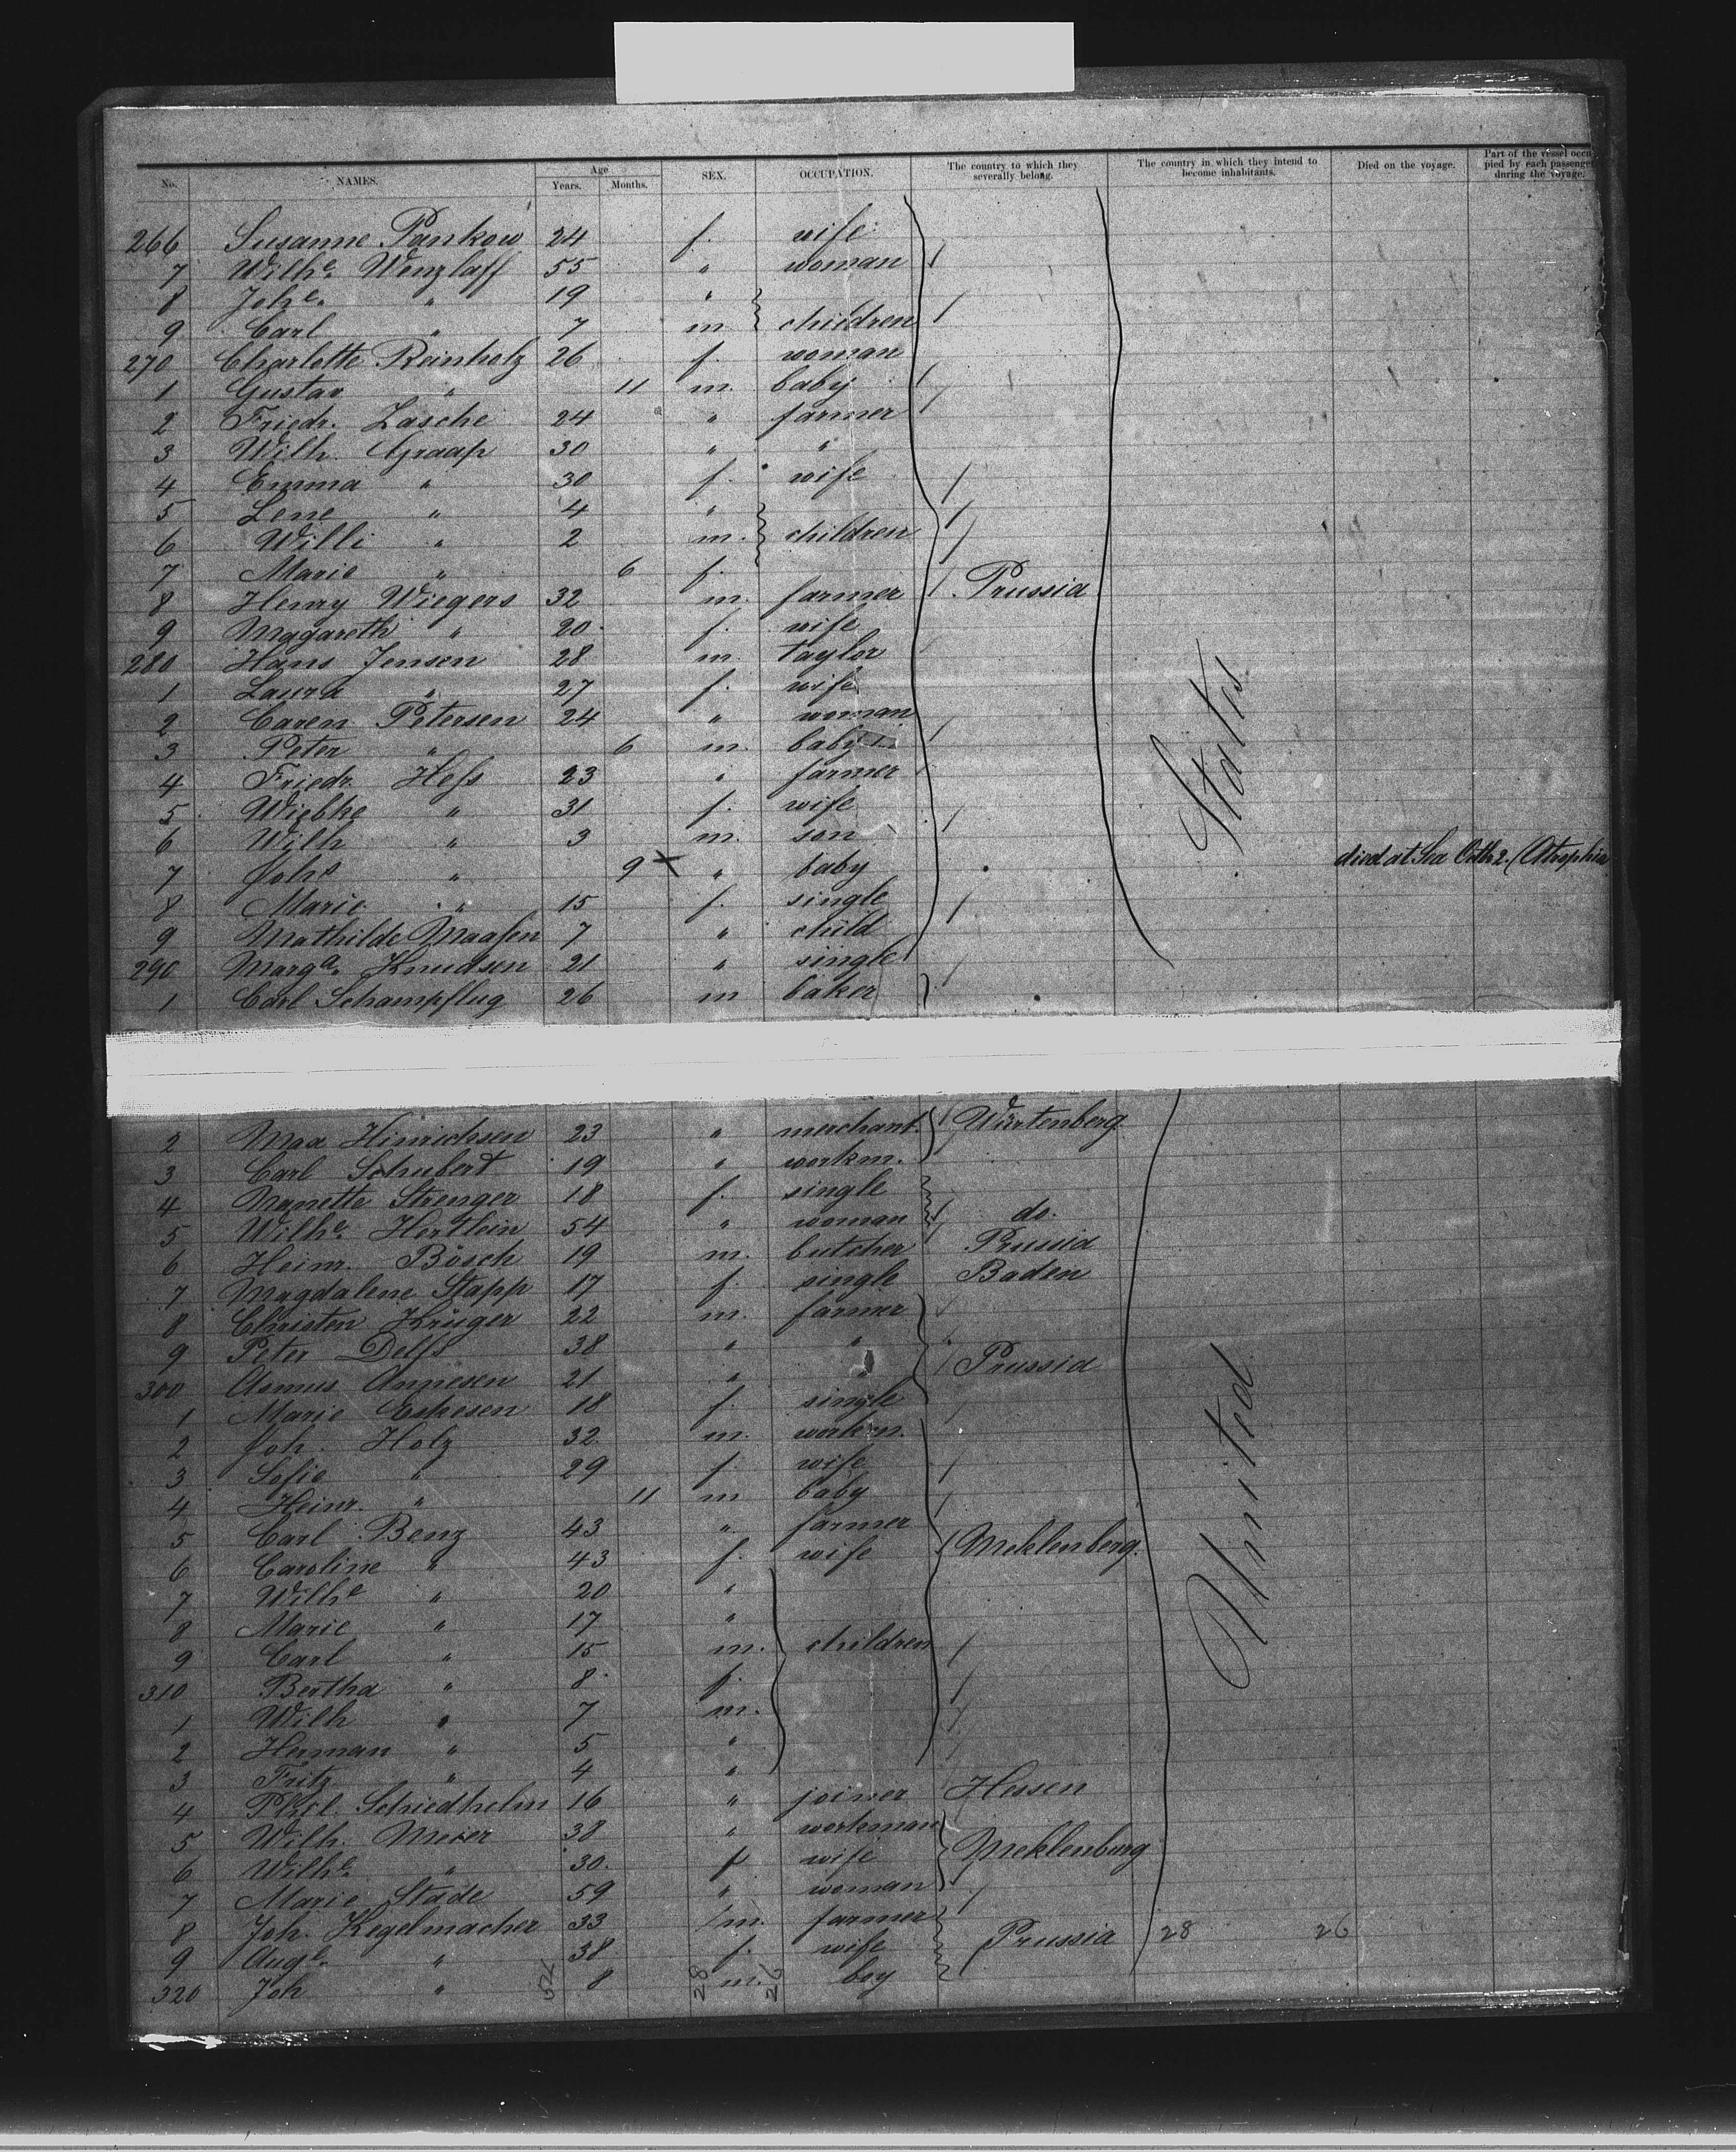 No. NAMES. Age Years. Months. SEX. OCCUPATION. The country to which they severally belong. The country in which they intend to become inhabitants. Died on the voyage. Part of the vessel occupied by each passenger during the voyage.
266 Susanne Pankow 24 f. wife
7 Wilhe. Wenzlaff 55 " woman
8 Johe. " 19 "
9 Carl " 7 m children
270 Charlotte Reinholz 26 f. woman
1 Gustav " 11 m. baby
2 Friedr. Zasche 24 " farmer
3 Wilh. Graap 30 " "
4 Emma " 30 f. wife
5 Lene " 4 "
6 Willi " 2 m. children
7 Marie " 6 f.
8 Henry Wiegers 32 m. farmer Prussia
9 Magareth " 20 f. wife
280 Hans Jensen 28 m. taylor
1 Laura " 27 f. wife
2 Caren Petersen 24 " woman
3 Peter " 6 m. baby
4 Friedr. Hess 23 " farmer
5 Wiebke " 31 f. wife
6 Wilh " 3 m. son States
7 Johs " 9 x " baby died at Sea Octbr 2. (Atrophia
8 Marie " 15 f. single
9 Mathilde Maassen 7 " child
290 Marga. Knudsen 21 " single
1 Carl Schampflug 26 m baker
2 Max Hinrichsen 23 " merchant. Würtenberg
3 Carl Schubert 19 " workm.
4 Nanette Strenger 18 f. single
5 Wilhe. Hertlein 54 " woman do.
6 Heinr. Bösch 19 m. butcher Prussia
7 Magdalene Stapp 17 f. single Baden
8 Christen Krüger 22 m. farmer
9 Peter Delfs 38 " "
300 Asmus Annesen 21 " " Prussia
1 Marie Eskesen 18 f. single
2 Joh. Holz 32 m. workm.
3 Sofie " 29 f. wife
4 Heinr. " 11 m baby
5 Carl Benz 43 " farmer
6 Caroline " 43 f. wife Meklenberg.
7 Wilhe " 20 " United
8 Marie " 17 "
9 Carl " 15 m. children
310 Bertha " 8 f.
1 Wilh " 7 m.
2 Herman " 5 "
3 Fritz " 4 "
4 Schiedhelm 16 " joiner Hessen
5 Wilh. Meier 38 " workman
6 Wilhe. " 30. f wife Meklenburg
7 Marie Stade 59 " woman
8 Joh. Kegelmacher 33 m. farmer
9 Auge. " 38 f. wife Prussia 28 26
320 Joh " 8 m. boy
28 26